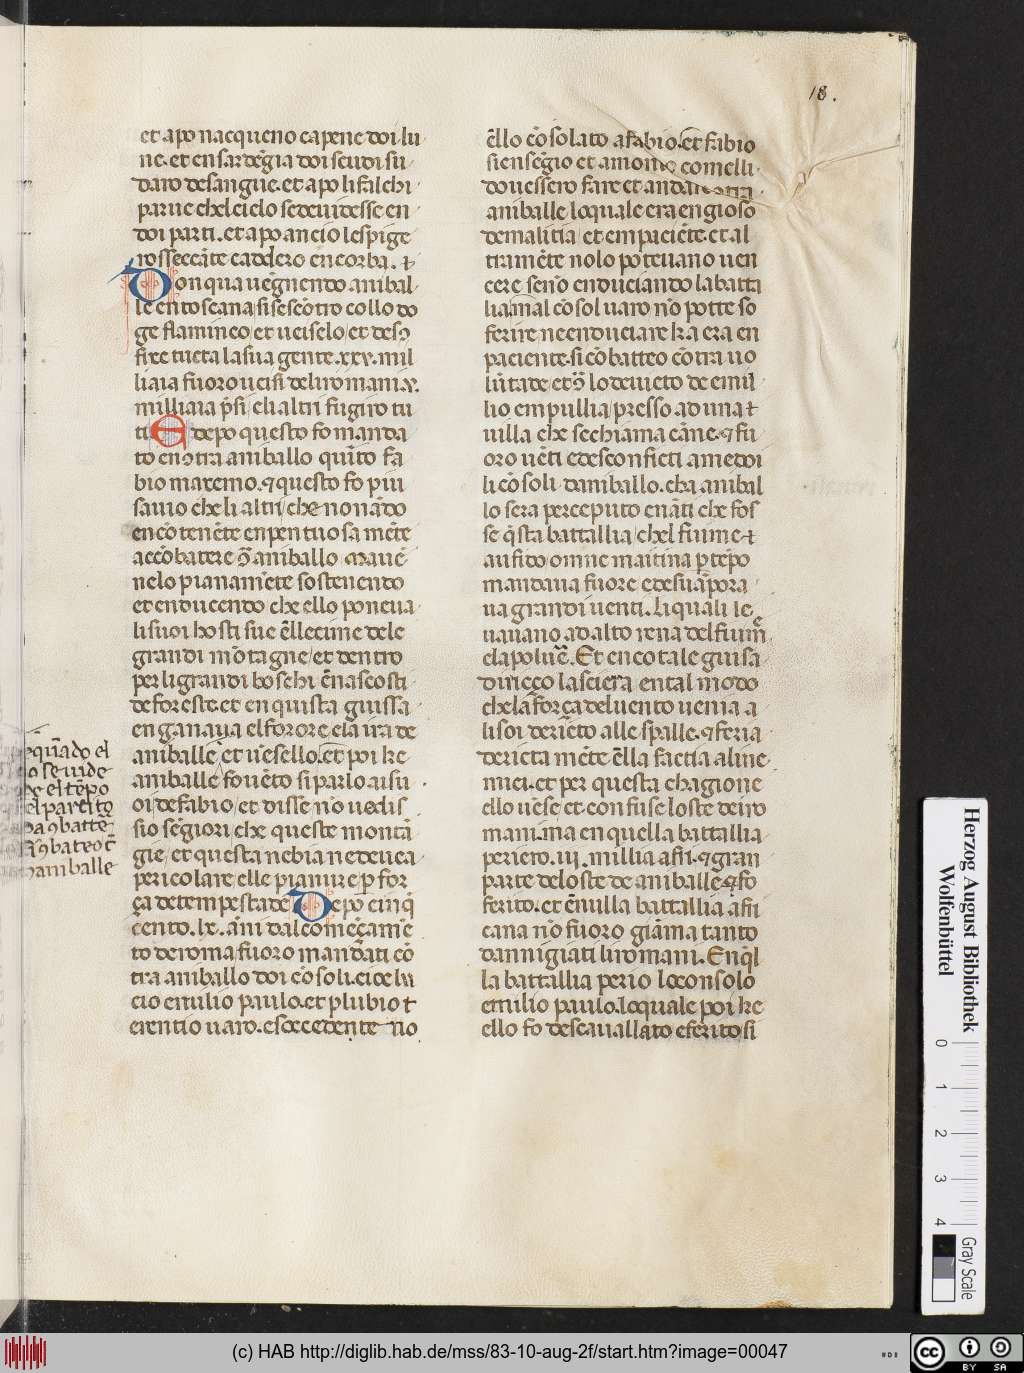 18.
et apo nacqueno capene doi lu
ne. et en sardegia doi scudi su
daro de sangue. et apo li falchi
parue chel cielo se deuidesse en
doi parti. et apo ancio le spige
ro sseccāte caddero en corba. ⁊
Donqua uēgnendo anibal
le en toscana si se scōtro collo do
ge flamineo / et uciselo / et desɔ
fire tucta la sua gente. xxv. mil
liaia fuoro ucisi de li romani. x.
milliaia p̄si / eli altri fugiro tu
ti Edepo questo fo manda
to enɔtra aniballo quīto fa
bio maximo. ⁊ questo fo piu
sauio che li altri / che non ādo
encōtenēte enpentuosa mēte
accōbatere ɔ̄ aniballo
nelo pianamēte sostenendo
et enducendo che ello poneua
li suoi hosti sue ēlle cime dele
grandi mōtagne / et dentro
per li grandi boschi ēnascosti
de foreste. et en quista guissa
enganaua el forore ela ira de
aniballe / et uēsello. et poi ke
aniballe fo uēto si parlo ai su
oi de fabio / et disse nō uedis
sio sēgiori che queste montā
gie / et questa nebia ne deuea
pericolare / elle pianure p for
ça de tempestade Depo cinq̄
cento. lx. āni dal comēçamē
to de roma fuoro mandati cō
tra aniballo doi cōsoli. cioe lu
cio emilio paulo. et plubio t
erentio uaro. esdecedente no
equādo el
o se uide
de el tēpo
el pare
da ɔbatte
ɔbateo
aniballe
ēllo cōsolato a fabio. et fabio
si ensēgio et amonio comelli
douessero fare et andare
aniballe loquale era engioso
de malitia et empaciēte. et al
tramēte nolo poteuano uen
cere senō enduciando la batta
lia. mal cōsol uaro nō potte so
ferire ne enduciare kra era en
paciente. si cōbatteo cōtra uo
lūtate et ɔ̄ lo deuieto de emil
lio em pullia / presso ad una t
uilla che se chiama cāne. ⁊ fu
oro uēti e desconficti amedoi
li cōsoli daniballo. cha anibal
lo sera perceputo enāti che fos
se q̄sta battallia / chel fiume t
aufido omne maitina p tēpo
mandaua fuore ede suāpora
ua grandi uenti. li quali le
uauano ad alto rena del fium̄
e la poluē. Et en cotale guisa
diriçço la sciera en tal modo
che la força del uento uenia a
li soi deriēto alle spalle. ⁊ feria
dericta mēte ēlla faccia a li ne
mici. et per questa chagione
ello uēse et confuse loste de iro
mani. ma en quella battallia
periero. iii. millia afri. ⁊ gran
parte deloste de aniballe ⁊ fo
ferito. et ēnulla battallia afri
cana nō fuoro giāma tanto
dannigiati li romani. Enq̄l
la battallia perio loconsolo
emilio paulo. loquale poi ke
ello fo descauallato e ferito si
Herzog August Bibliothek
Wolfenbüttel
0 1 2 3 4
Gray Scale
(c) HAB http://diglib.hab.de/mss/83-10-aug-2f/start.htm?image=00047
cc BY SA